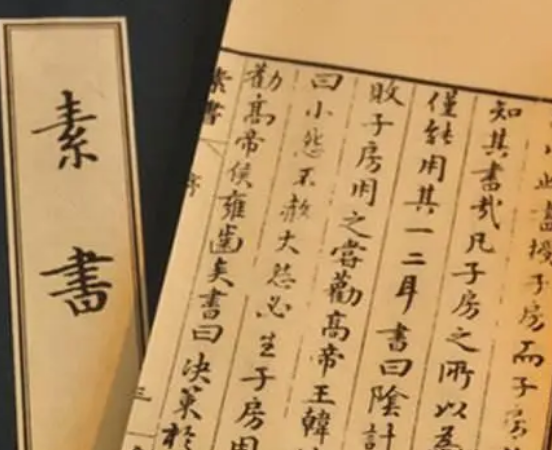 素書
此書授子房而子房
知其書哉凡子房之所以為
僅能用其一二耳書曰陰計
敗子房用之嘗勸髙帝王韓
曰小怨不赦大怨必生子房用
勸髙帝侯雍齒矣書曰決策於
素書 序 三